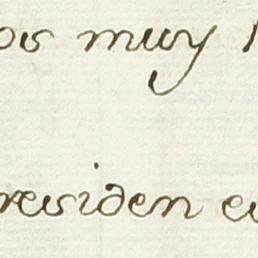 os muy
residen en